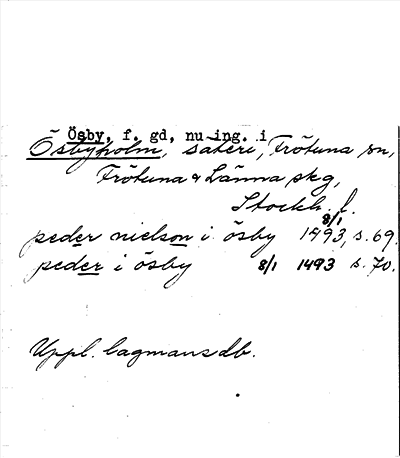 Ösby, f. gd, nu ing. i
Ösbyholm, säteri, Frötuna sn,
Frötuna & Länna skg,
Stockh. l.
peder nielson i ösby 8/1 1493, s. 69.
peder i ösby 8/1 1493 s. 70.
Uppl. lagmansdb.